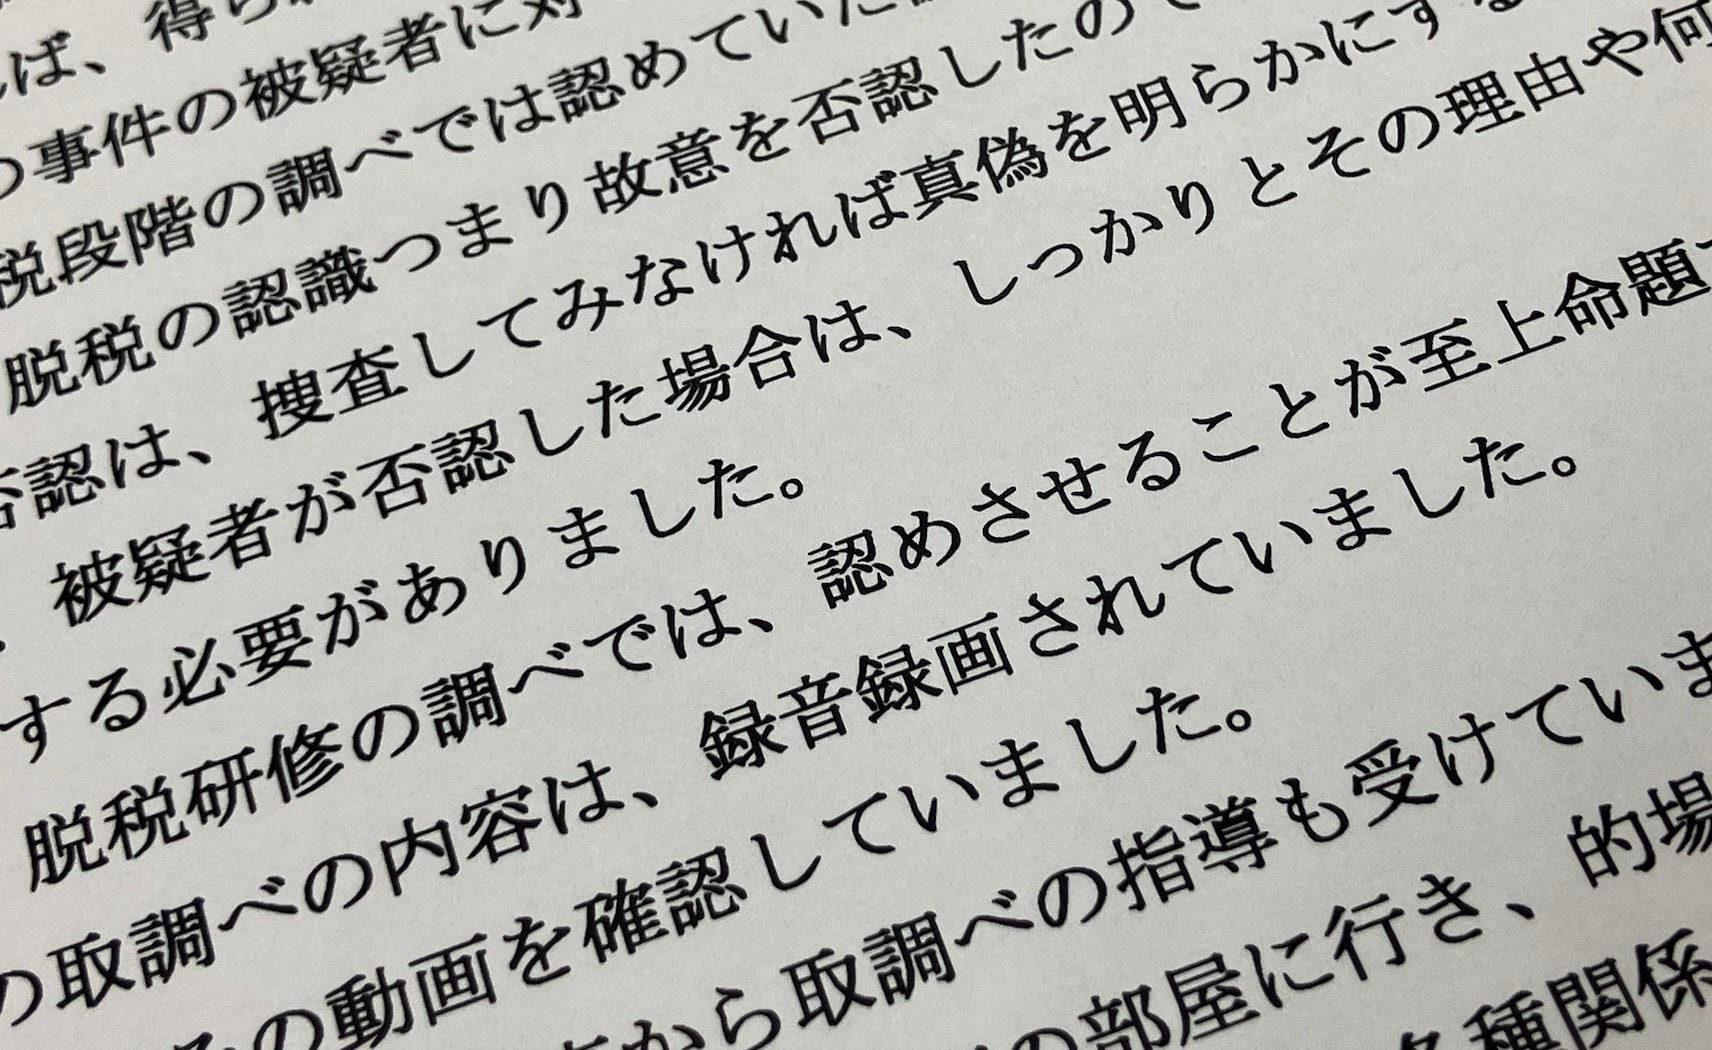 ば、得ら
事件の被疑者に対
税段階の調べでは認めていた
脱税の認識つまり故意を否認したので
否認は、捜査してみなければ真偽を明らかにする
被疑者が否認した場合は、しっかりとその理由や何
する必要がありました。
脱税研修の調べでは、認めさせることが至上命題
の取調べの内容は、録音録画されていました。
の動画を確認していました。
から取調べの指導も受けていま
の部屋に行き、的場
各種関係